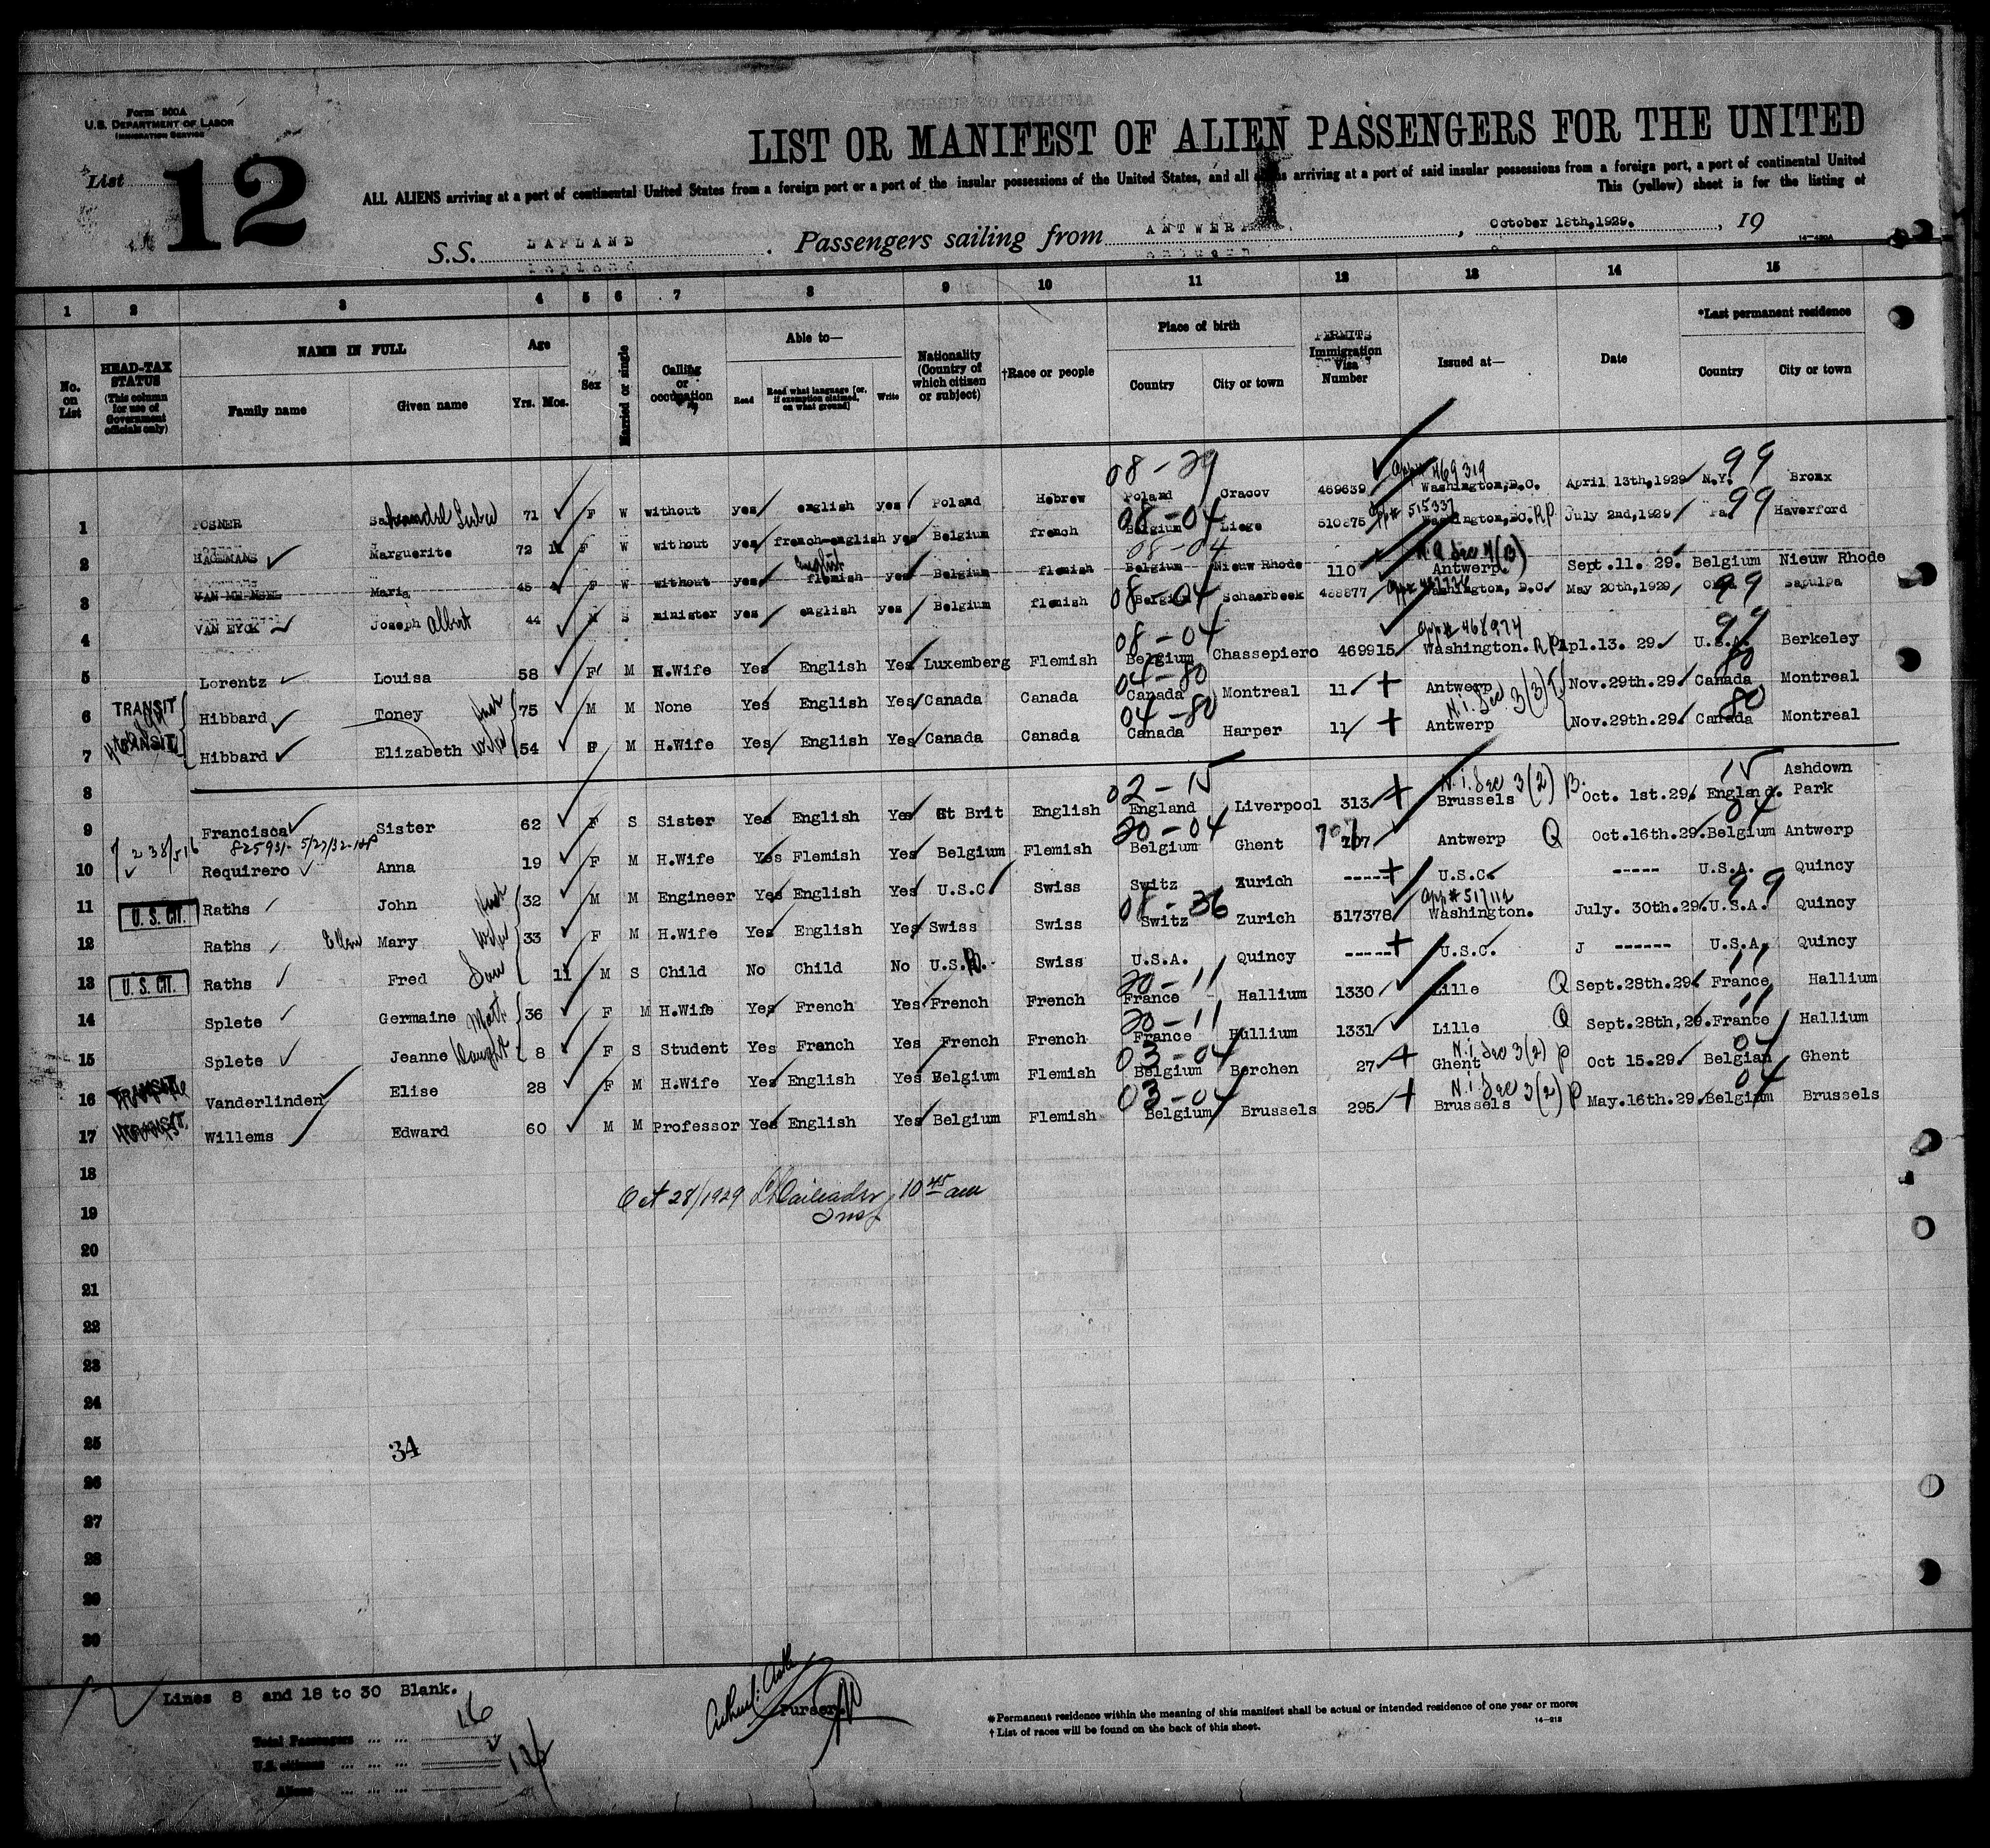 Form 500A
U.S. DEPARTMENT OF LABOR
IMMIGRATION SERVICE
List 12
LIST OR MANIFEST OF ALIEN PASSENGERS FOR THE UNITED
ALL ALIENS arriving at a port of continental United States from a foreign port or a port of the insular possessions of the United States, and all aliens arriving at a port of said insular possessions from a foreign port, a port of continental United
This (yellow) sheet is for the listing of
S.S. LAPLAND . Passengers sailing from ANTWERP , October 18th,1929. , 19
14-480A
1 2 3 4 5 6 7 8 9 10 11 12 13 14 15
No. on List
HEAD-TAX STATUS (This column for use of Government officials only)
NAME IN FULL
Family name Given name
Age
Yrs. Mos.
Sex
Married or single
Calling or occupation
Able to—
Read Read what language [or, if exemption claimed, on what ground] Write
Nationality (Country of which citizen or subject)
†Race or people
Place of birth
Country City or town
PERMITS
Immigration Visa Number
Issued at—
Date
*Last permanent residence
Country City or town
08-29 App# 469319 99
1 POSNER 71 F W without yes english yes Poland Hebrew Poland Cracov 469639 Washington,D.C. April 13th,1929 N.Y. Bronx
08-04 App# 515337 99
2 HAGEMANS Marguerite 72 11 F W without yes french-english yes Belgium french Belgium Liege 510875 Washington,DC. RP July 2nd,1929 Pa. Haverford
english 08-04
3 VAN MEENSEL Maria 45 F W without yes flemish yes Belgium flemish Belgium Nieuw Rhode 110 Antwerp. Sept.11. 29. Belgium Nieuw Rhode
08-04 99
4 VAN EYCK Joseph Albert 44 M S minister yes english yes Belgium flemish Belgium Schaerbeek 488877 Washington, D.C. May 20th,1929 Okla Sapulpa
08-04 App# 468974 99
5 Lorentz Louisa 58 F M H.Wife Yes English Yes Luxemberg Flemish Belgium Chassepiero 469915 Washington. RP Apl.13. 29. U.S.A. Berkeley
04-80 80
6 TRANSIT Hibbard Toney Husb 75 M M None Yes English Yes Canada Canada Canada Montreal 11 Antwerp Nov.29th.29 Canada Montreal
04-80 N.I. Sec 3(3)T 80
7 TRANSIT Hibbard Elizabeth Wife 54 F M H.Wife Yes English Yes Canada Canada Canada Harper 11 Antwerp Nov.29th.29. Canada Montreal
8
02-15 N.I. Sec 3(2) B. 15 Ashdown
9 Francisca Sister 62 F S Sister Yes English Yes Gt Brit English England Liverpool 313 Brussels Oct. 1st.29. England. Park
825931- 5/27/32- 20-04 04
10 Requirero Anna 19 F M H.Wife Yes Flemish Yes Belgium Flemish Belgium Ghent 707 Antwerp Q Oct.16th.29. Belgium Antwerp
11 U. S. CIT. Raths John Husb 32 M M Engineer Yes English Yes U.S.C. Swiss Switz Zurich ----- U.S.C. ----- U.S.A. Quincy
08-36 App# 517112 99
12 Raths Ellen Mary Wife 33 F M H.Wife Yes English Yes Swiss Swiss Switz Zurich 517378 Washington. July. 30th.29. U.S.A. Quincy
13 U. S. CIT. Raths Fred Son 11 M S Child No Child No U.S. Swiss U.S.A. Quincy ----- U.S.C. J ------ U.S.A. Quincy
20-11 11
14 Splete Germaine Moth. 36 F M H.Wife Yes French Yes French French France Hallium 1330 Lille Q Sept.28th.29. France Hallium
20-11 11
15 Splete Jeanne Daught. 8 F S Student Yes French Yes French French France Hallium 1331 Lille Q Sept.28th,29. France Hallium
03-04 N.I. Sec 3(2) P 04
16 TRANSIT Vanderlinden Elise 28 F M H.Wife Yes English Yes Belgium Flemish Belgium Berchen 27 Ghent Oct 15.29. Belgian Ghent
03-04 N.I. Sec 3(2) P 04
17 TRANSIT Willems Edward 60 M M Professor Yes English Yes Belgium Flemish Belgium Brussels 295 Brussels May.16th.29. Belgium Brussels
18
Oct 28/1929 10 45 am
19 Insp
20
21
22
23
24
25 34
26
27
28
29
30
Lines 8 and 18 to 30 Blank.
Total Passengers ... ... 16
U.S. citizens ... ... ... 2
Aliens ... ... ...
Purser.
*Permanent residence within the meaning of this manifest shall be actual or intended residence of one year or more.
†List of races will be found on the back of this sheet.
14-213